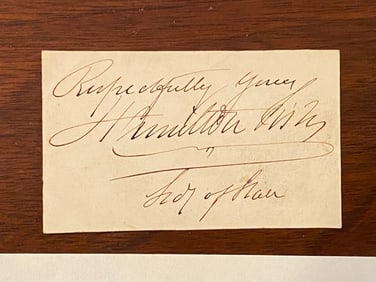 Respectfully Yours
Hamilton Fish
Secy of State